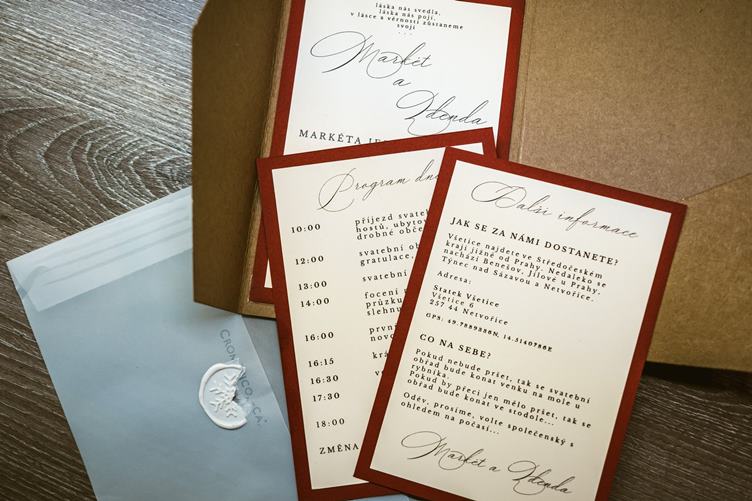 láska nás svedla,
láska nás pojí,
v lásce a věrnosti zůstaneme
svoji
...
Markét
a
Zdenda
MARKÉTA
Program
10:00
příjezd
hostů,
drobné
12:00
svatební
gratulace,
13:00
svatební
14:00
focení
16:00
16:15
16:30
17:30
18:00
ZMĚNA
Další informace
JAK SE ZA NÁMI DOSTANETE?
Všetice najdete ve Středočeském
kraji jižně od Prahy. Nedaleko se
nachází Benešov, Jílové u Prahy,
Týnec nad Sázavou a Netvořice.
Adresa:
Statek Všetice
Všetice 6
257 44 Netvořice
GPS:
CO NA SEBE?
Pokud nebude pršet, tak se svatební
obřad bude konat venku na mole u
rybníka.
Pokud by přeci jen mělo pršet, tak se
obřad bude konat ve stodole...
Oděv, prosíme, volte společenský s
ohledem na počasí...
Markét a Zdenda